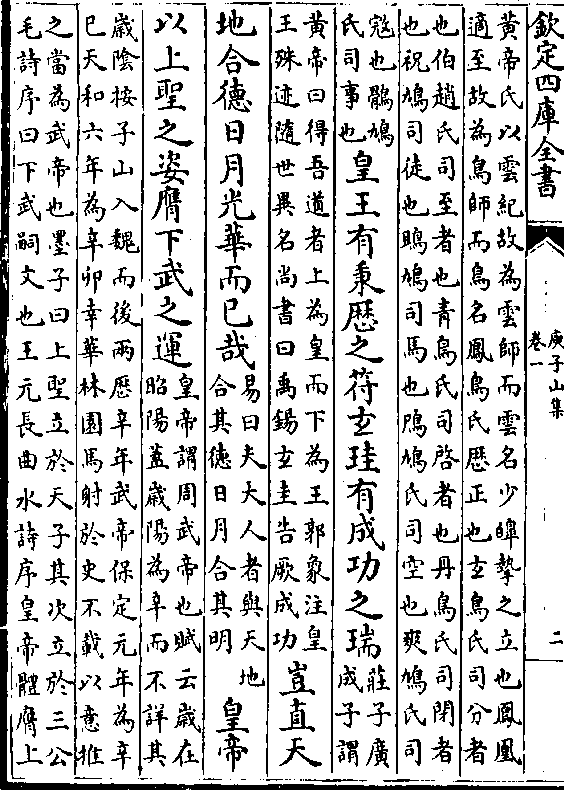 欽定四庫全書
庚子山集
卷一
二
黄帝氏以雲紀故為雲師而雲名少皥摯之立也鳳凰
適至故為鳥師而鳥名鳳鳥氏歴正也玄鳥氏司分者
也伯趙氏司至者也青鳥氏司啓者也丹鳥氏司閉者
也祝鳩司徒也鴡鳩司馬也鳲鳩氏司空也爽鳩氏司
冦也鶻鳩
氏司事也
皇王有秉歴之符玄珪有成功之瑞
莊子廣
成子謂
黄帝曰得吾道者上為皇而下為王郭象注皇
王殊迹隨世異名尚書曰禹錫玄圭告厥成功
豈直天
地合徳日月光華而已哉
易曰夫大人者與天地
合其徳日月合其明
皇帝
以上聖之姿膺下武之運
皇帝謂周武帝也賦云歲在
昭陽蓋歲陽為辛而不詳其
歲陰按子山入魏而後兩歴辛年武帝保定元年為辛
巳天和六年為辛卯幸華林園馬射於史不載以意推
之當為武帝也墨子曰上聖立於天子其次立於三公
毛詩序曰下武嗣文也王元長曲水詩序皇帝體膺上